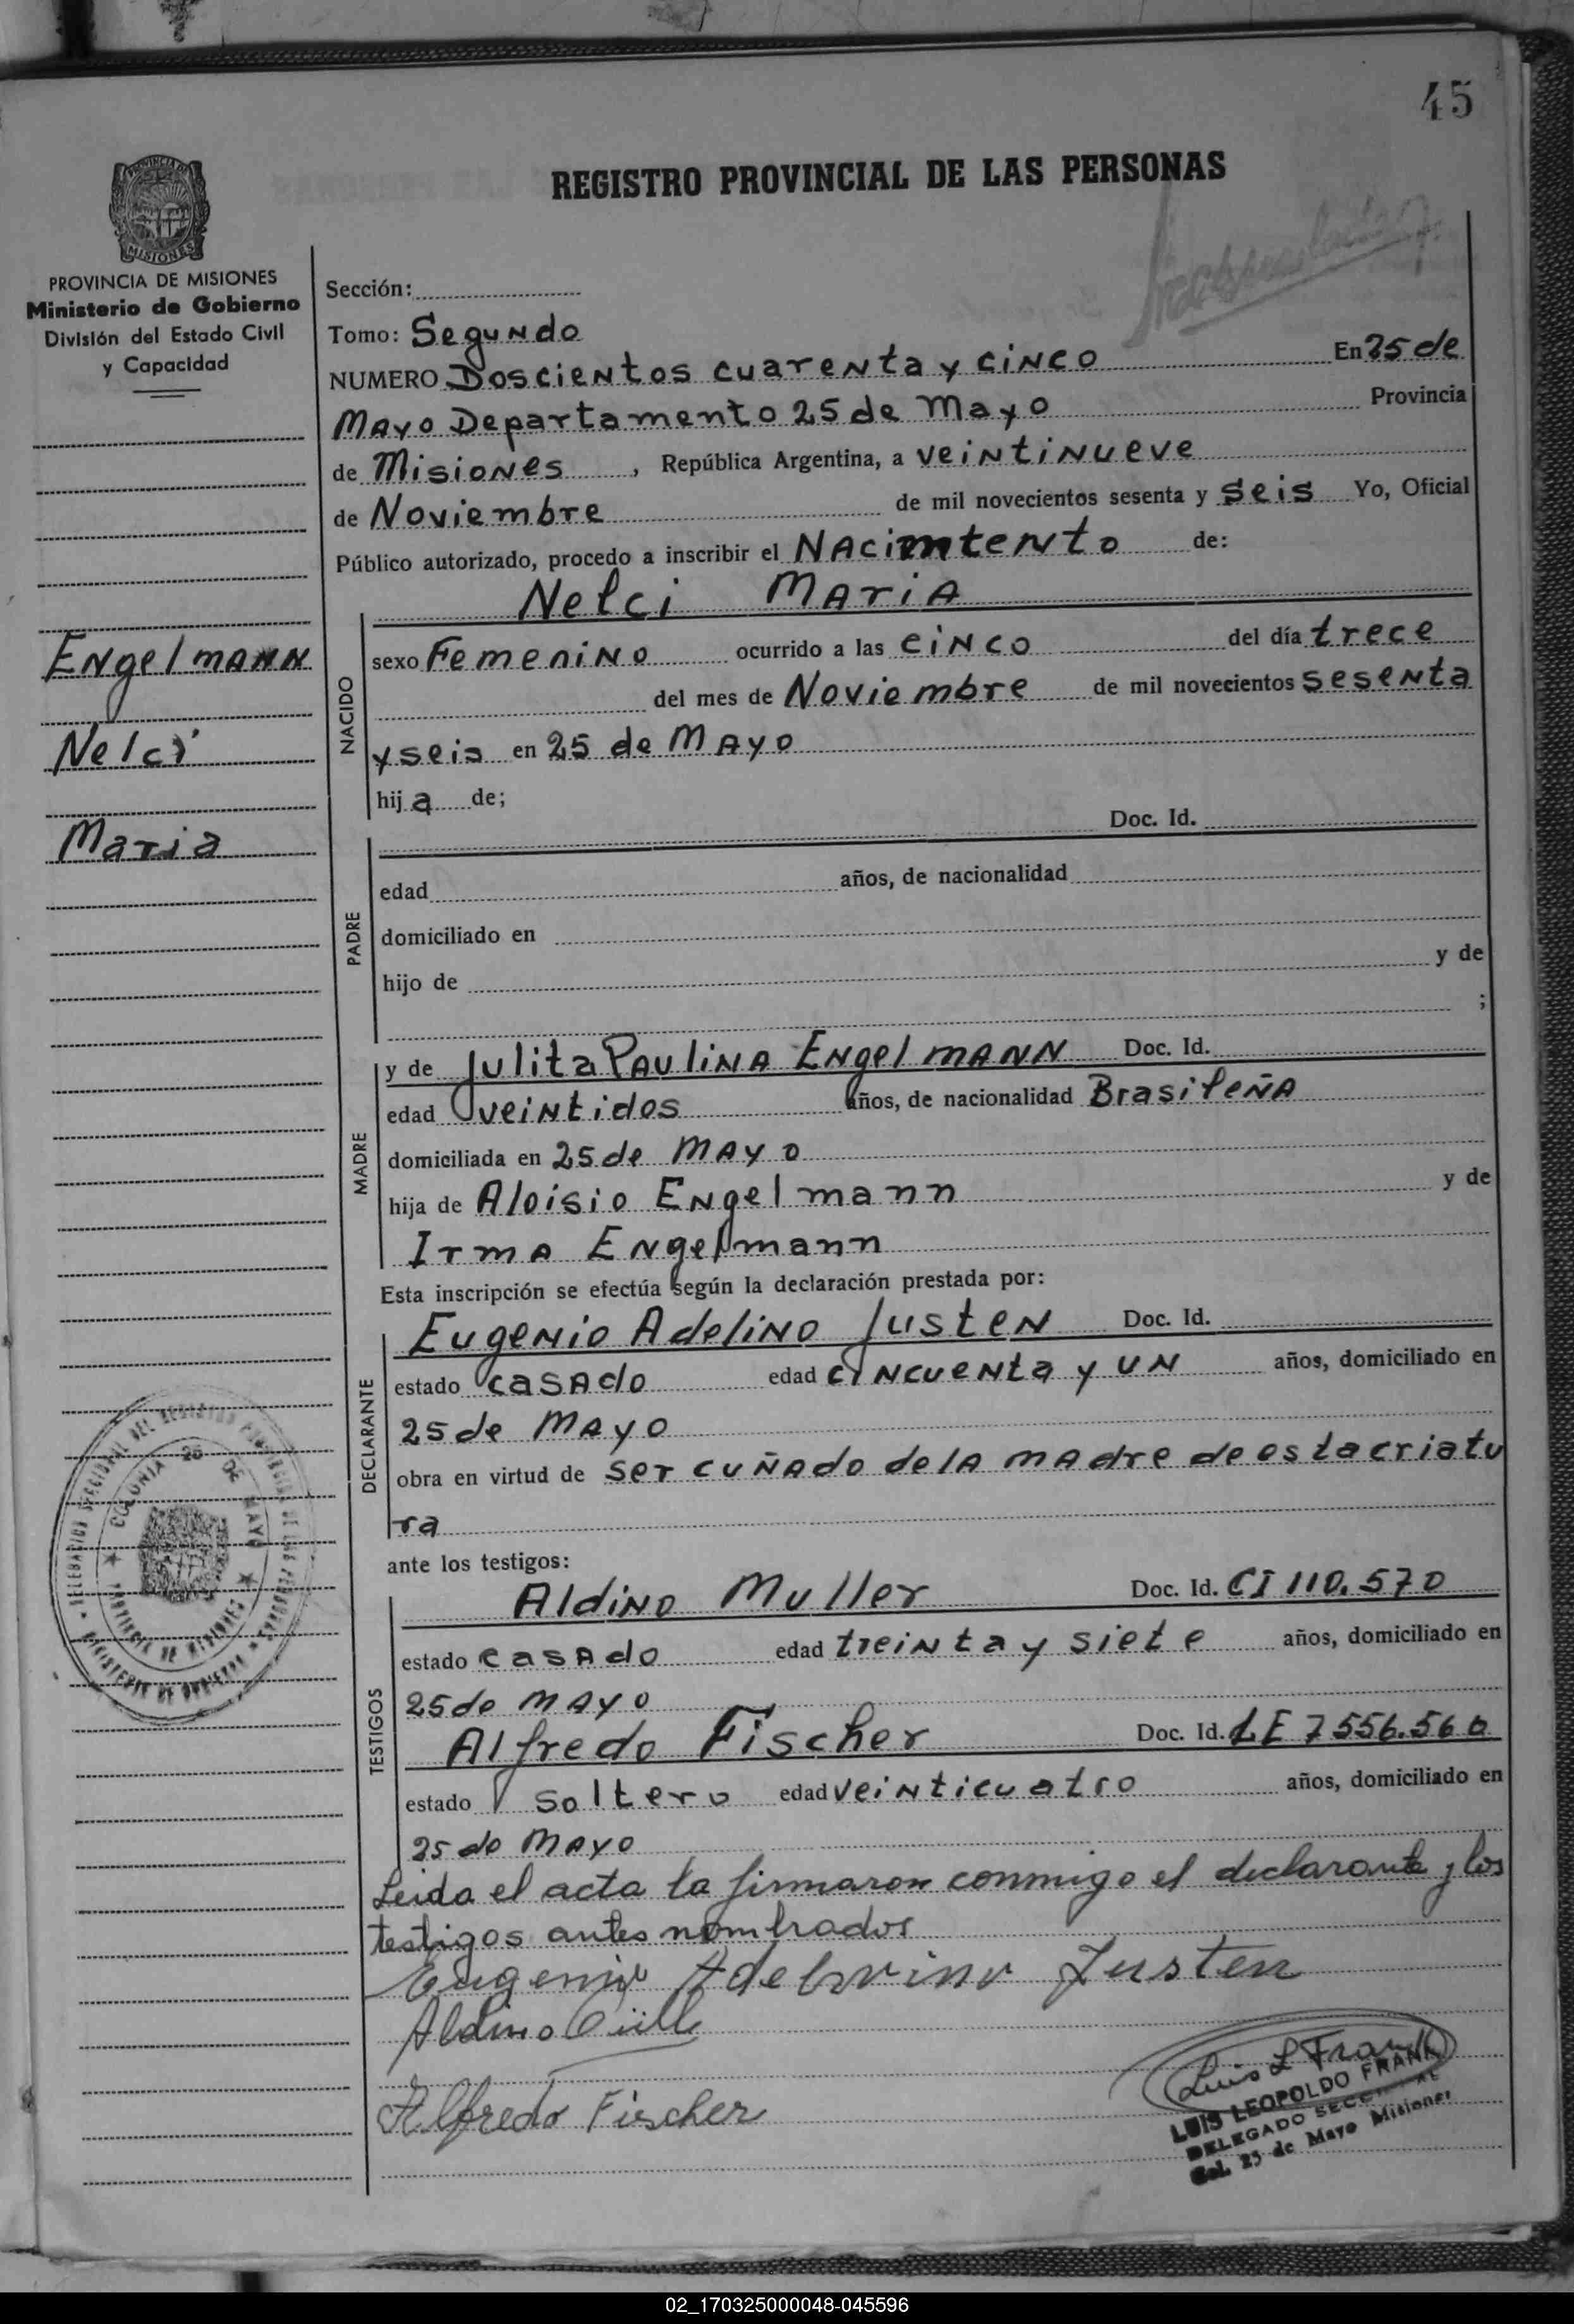 45
REGISTRO PROVINCIAL DE LAS PERSONAS
MISIONES
PROVINCIA DE MISIONES
Ministerio de Gobierno
División del Estado Civil
y Capacidad
Engelmann
Nelci
Maria
Sección:
Tomo: Segundo
NUMERO Doscientos cuarenta y cinco En 25 de
Mayo Departamento 25 de Mayo Provincia
de Misiones, República Argentina, a veintinueve
de Noviembre de mil novecientos sesenta y seis Yo, Oficial
Público autorizado, procedo a inscribir el Nacimiento de:
Nelci Maria
NACIDO
sexo Femenino ocurrido a las cinco del día trece
del mes de Noviembre de mil novecientos sesenta
y seis en 25 de Mayo
hija de;
PADRE
Doc. Id.
edad años, de nacionalidad
domiciliado en
hijo de y de
;
MADRE
y de Julita Paulina Engelmann Doc. Id.
edad veintidos años, de nacionalidad Brasileña
domiciliada en 25 de Mayo
hija de Aloisio Engelmann y de
Irma Engelmann
Esta inscripción se efectúa según la declaración prestada por:
DECLARANTE
Eugenio Adelino Justen Doc. Id.
estado casado edad cincuenta y un años, domiciliado en
25 de Mayo
obra en virtud de ser cuñado de la madre de esta criatu
ra
ante los testigos:
TESTIGOS
Aldino Muller Doc. Id. CI 110.570
estado casado edad treinta y siete años, domiciliado en
25 de Mayo
Alfredo Fischer Doc. Id. LE 7556.560
estado soltero edad veinticuatro años, domiciliado en
25 de Mayo
Leida el acta la firmaron conmigo el declarante y los
testigos antes nombrados
Eugenio Adelvino Justen
Aldino
Alfredo Fischer
Luis L Frank
LUIS LEOPOLDO FRANK
DELEGADO SECCIONAL
Col. 25 de Mayo Misiones
COLONIA 25 DE MAYO
PROVINCIA DE MISIONES
02_170325000048-045596